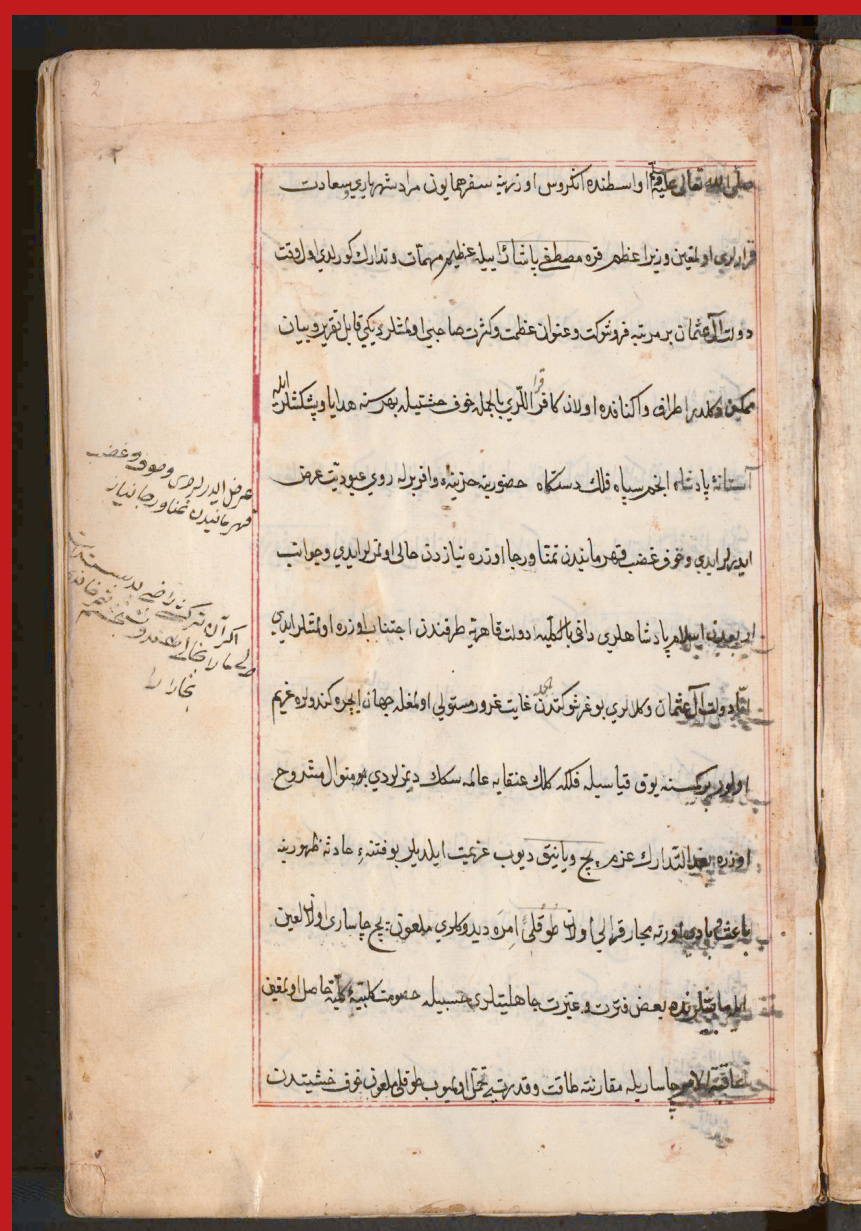 صلى الله تعالى عليه وسلم اواسطنده انكروس اوزرينه سفر همايون مراد شهرياري وسعادت
قرارلري اولمغين وزير اعظم قره مصطفى پاشا ايله عظيم مهمات وتدارك كورلدي اول وقت
دولت آل عثمان بر مرتبه فر وشوكت وعنوان عظمت وكثرت صاحبي اولمشلرديكي قابل تقرير وبيان
ممكن دكلدر اطراف واكنافده اولان كافر قراللري بالجمله خوف خشيتيله بهر سنه هدايا وپيشكشلر ايله
آستانۀ پادشاه انجم سپاه فلك دستكاه حضورينه خزينۀ وافر برله روي عبوديت عرض
ايدرلر ايدي وخوف غضب قهرمانيدن تمنا ورجا اوزره نيازدن خالي اولمزلر ايدي وجوانب
اربعه‌دن اسلام پادشاهلري دافى بالكليه دولت قاهره طرفندن اجتناب اوزره اولمشلر ايدي
امّا دولت آل عثمان وكلالري بو فر شوكتدن غايت غرور مستولي اولمغله جهان ايچره كندولره غريم
اولور بر كسنه يوق قياسيله فلكه كلك عنقايه عالمه سكك ديزلردي بو منوال مشروح
اوزره بعد التدارك عزم بچ ويانيق ديوب عزيمت ايلديلر بو فتنه‌ء حادثه ظهورينه
باعث وبادي اورته مجار قرالي اولان طوقلى امره ديدوكلري ملعون بچ چاساري اولان لعين
ايله مابينلرنده بعض فترت وغيرت جاهليتلري حسبيله خصومت كلّيه حاصل اولمغين
عاقبة الامر چاساريله مقارنته طاقت وقدرته تحمل اولميوب طوقلى ملعون خوف خشيتدن
عرض ايدرلردى وخوف وغضب
قهرمانيدن تمنا ورجا نياز
اكر آن ترك شيرازى بدست آرد دل ما را
بخال هندويش بخشم سمرقند و
بخارا را